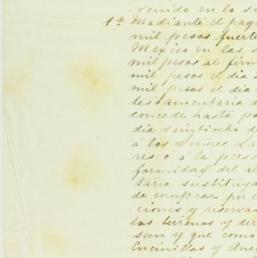 venido en lo si
1ª Mediante el pag
mil pesos fuerte
Mexico en las s
mil pesos al firm
mil pesos el dia
mil pesos el dia
testamentaria d
concede hasta po
dia veintiocho d
á los Senores
res o á la perso
formidad del al
tario sustituya
de comprar por c
ciones y reserva
los terrenos y der
san y que como
Encinillas y Anex